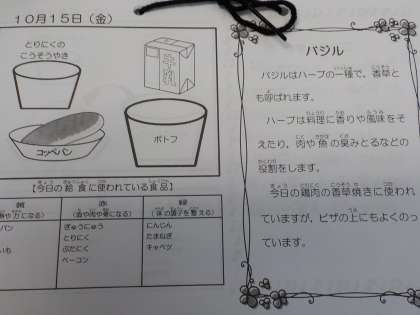 10月15日（金）
とりにくの
こうそうやき
牛乳
コッペパン
ポトフ
【今日の給食に使われている食品】
黄
赤
緑
（血や肉や骨になる）
（体の調子を整える）
パン
ぎゅうにゅう
にんじん
とりにく
たまねぎ
いも
ぶたにく
キャベツ
ベーコン
バジル
バジルはハーブの一種で、香草と
も呼ばれます。
ハーブは料理に香りや風味をそ
えたり、肉や魚の臭みとるなどの
役割をします。
今日の鶏肉の香草焼きに使われ
ていますが、ピザの上にもよくのっ
ています。